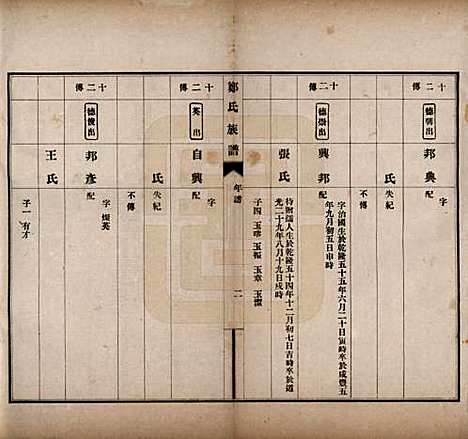 十二傳
德
出
邦典
配
字
氏
失紀
不傳
十二傳
德
出
興邦
配
字治國生於乾隆五十五年六月二十日寅時卒於咸豐五
年九月初五日申時
張氏
待贈孺人生於乾隆五十四年十二月初七日吉時卒於道
光二十九年八月十九日戌時
子四 玉
玉振 玉章 玉
鄭氏族譜
年譜
二
十二傳
英出
自興
配
字
氏
失紀
不傳
十二傳
德俊出
邦彥
配
字燦英
王氏
子一有才